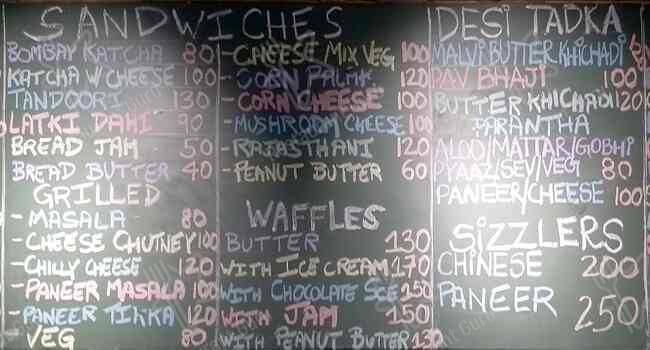 SANDWICHES
BOMBAY KATCHA 80
KATCHA W CHEESE 100
TANDOORI 130
LATKI DAHI 90
BREAD JAM 50
BREAD BUTTER 40
GRILLED
- MASALA 80
- CHEESE CHUTNEY 100
- CHILLY CHEESE 120
- PANEER MASALA 100
- PANEER TIKKA 120
VEG 80
- CHEESE MIX VEG 100
- CORN PALAK 120
- CORN CHEESE 100
- MUSHROOM CHEESE 100
- RAJASTHANI 120
- PEANUT BUTTER 60
WAFFLES
BUTTER 130
WITH ICE CREAM 170
WITH CHOCOLATE SCE 150
WITH JAM 150
WITH PEANUT BUTTER 130
DESI TADKA
MALVI BUTTER KHICHADI
PAV BHAJI 100
BUTTER KHICHADI 120
PARANTHA
ALOO/MATTAR/GOBHI
PYAAZ/SEV/VEG 80
PANEER/CHEESE 100
SIZZLERS
CHINESE 200
PANEER 250